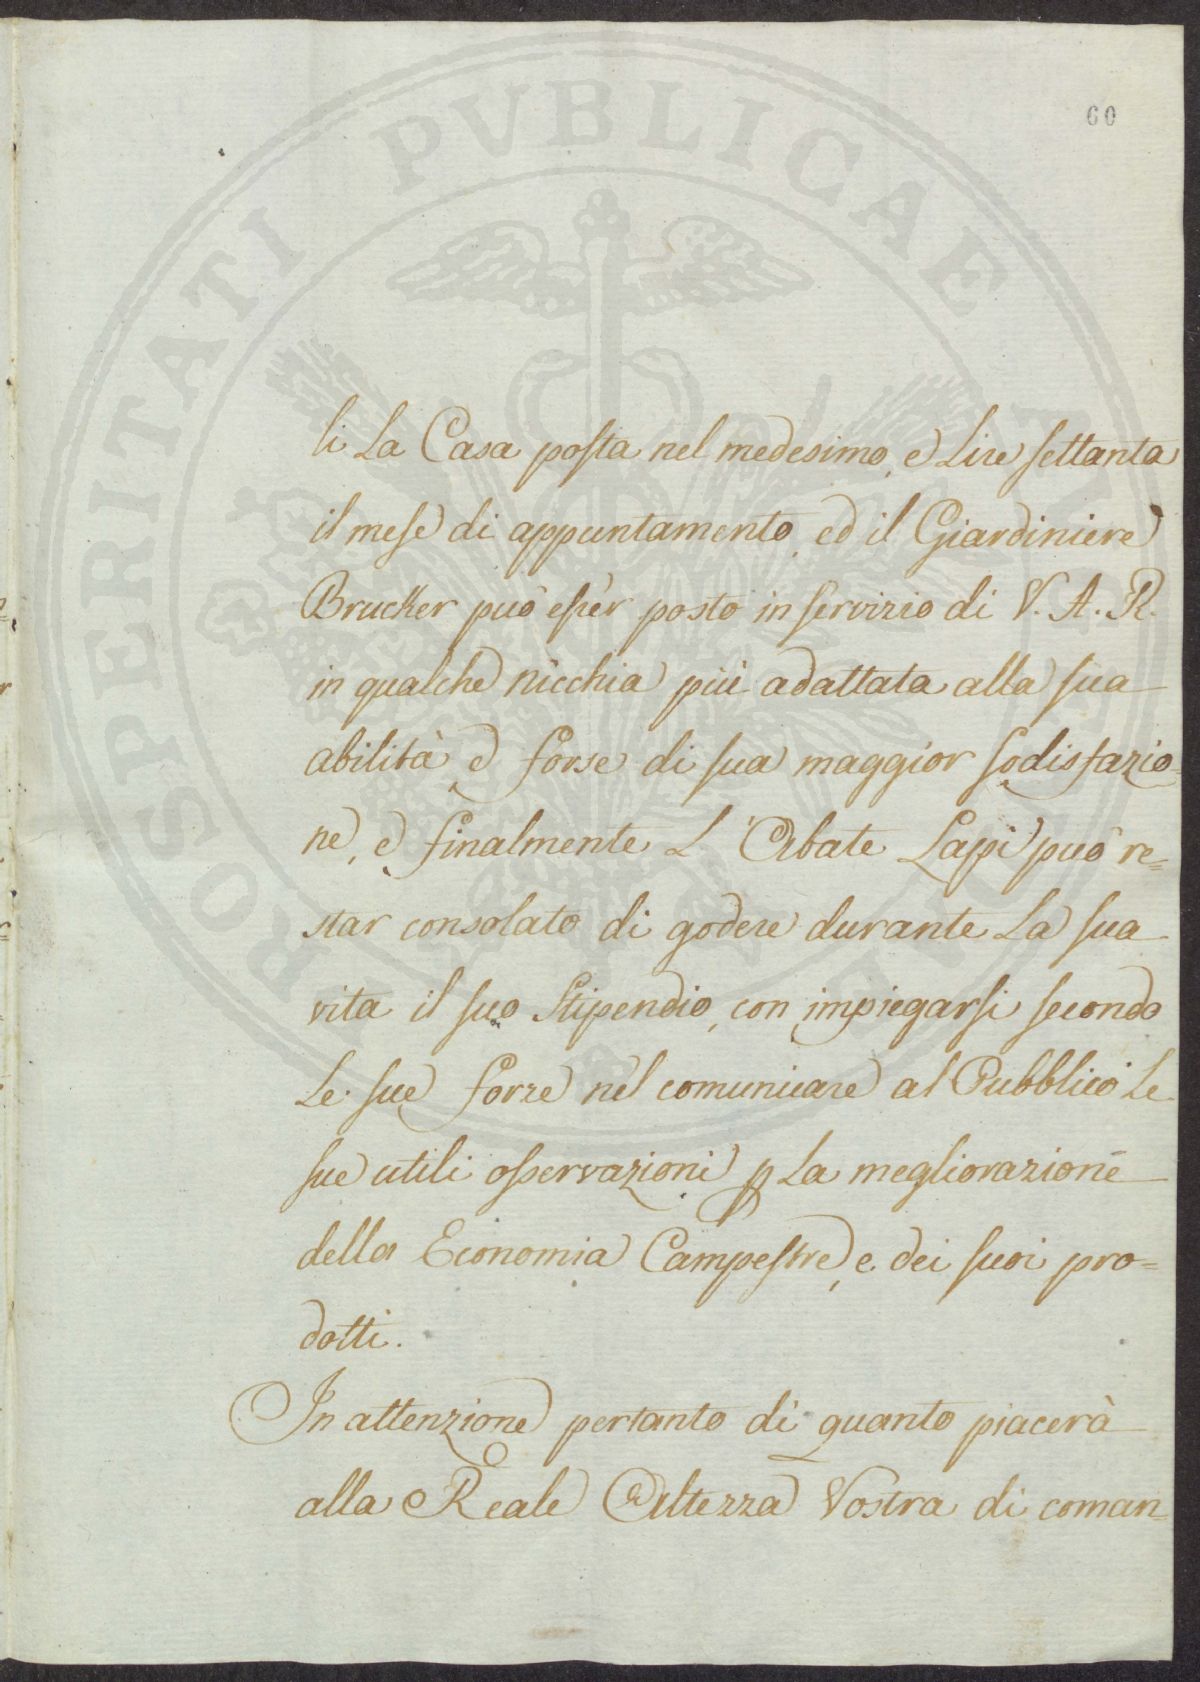 60
PROSPERITATI PVBLICAE
li La Casa posta nel medesimo, e Lire settanta
il mese di appuntamento, ed il Giardiniere
Brucker può esser posto in servizio di V. A. R.
in qualche nicchia più adattata alla sua
abilità, e forse di sua maggior sodisfazio=
ne, e finalmente L'Abate Lapi può re=
star consolato di godere durante La sua
vita il suo Stipendio, con impiegarsi secondo
Le sue forze nel comunicare al Pubblico Le
sue utili osservazioni p La megliorazione
della Economia Campestre, e dei suoi pro=
dotti.
In attenzione pertanto di quanto piacerà
alla Reale Altezza Vostra di coman=